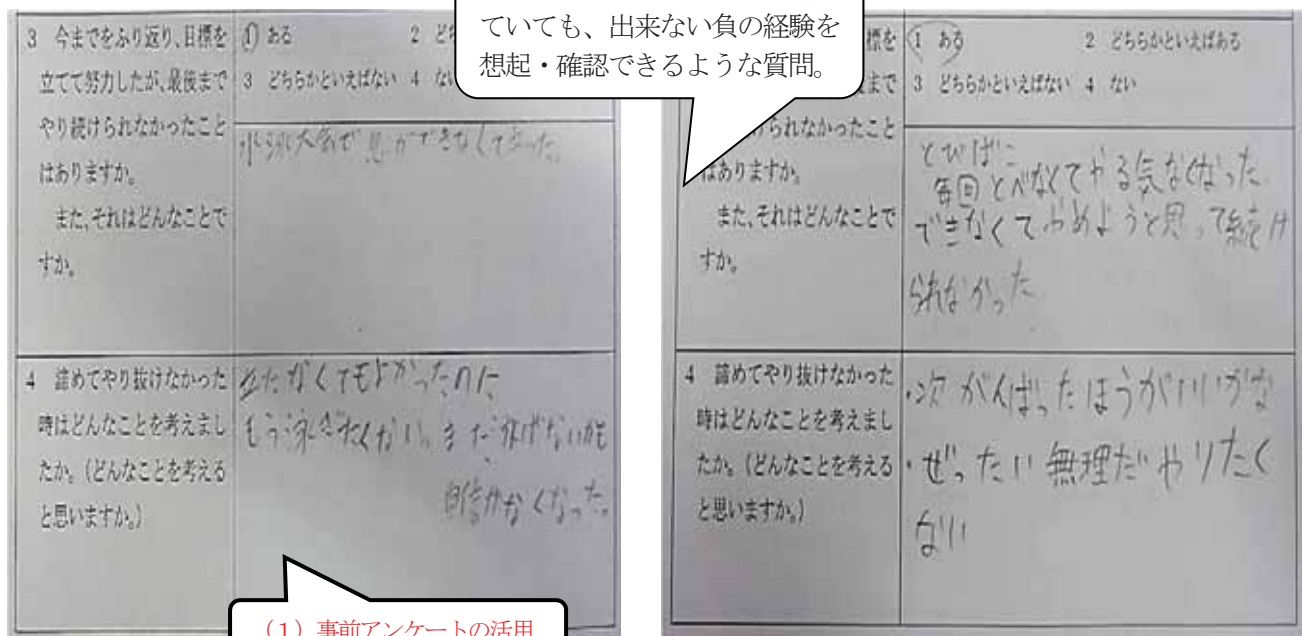 ていても、出来ない負の経験を
想起・確認できるような質問。
3 今までをふり返り、目標を
立てて努力したが、最後まで
やり続けられなかったこと
はありますか。
また、それはどんなことで
すか。
1 ある 2
3 どちらかといえばない 4 ない
水泳大会で息ができなくて立った。
4 諦めてやり抜けなかった
時はどんなことを考えまし
たか。(どんなことを考える
と思いますか。)
立たなくてもよかったのに
もう泳ぎたくない。まだ泳げないかも
自信がなくなった。
(1)事前アンケートの活用
標を
まで
けられなかったこと
はありますか。
また、それはどんなことで
すか。
1 ある 2 どちらかといえばある
3 どちらかといえばない 4 ない
とびばこ
毎回とべなくてやる気なくなった
できなくてやめようと思って続け
られなかった
4 諦めてやり抜けなかった
時はどんなことを考えまし
たか。(どんなことを考える
と思いますか。)
・次がんばったほうがいいかな
・ぜったい無理だやりたく
ない